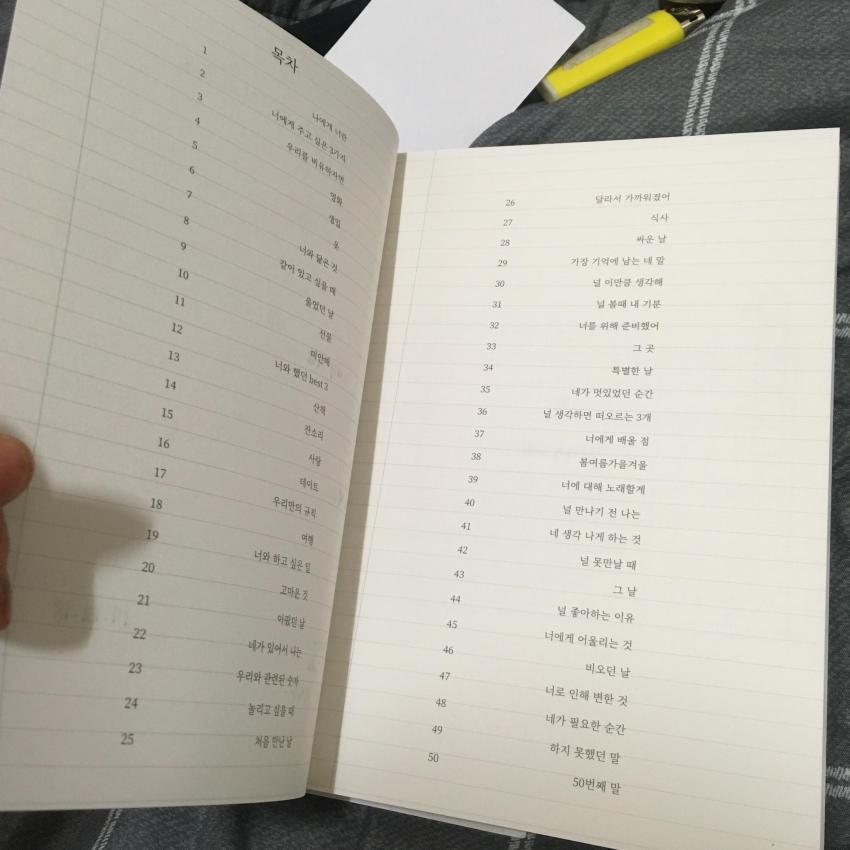 목차
1 나에게 너란
2 너에게 주고 싶은 3가지
3 우리를 비유하자면
4 영화
5 생일
6 옷
7 너와 닮은 것
8 같이 있고 싶을 때
9 울었던 날
10 선물
11 미안해
12 너와 했던 best 3
13 산책
14 잔소리
15 사랑
16 데이트
17 우리만의 규칙
18 여행
19 너와 하고 싶은 일
20 고마운 것
21 아팠던 날
22 네가 있어서 나는
23 우리와 관련된 숫자
24 놀리고 싶을 때
25 처음 만난 날
26 달라서 가까워졌어
27 식사
28 싸운 날
29 가장 기억에 남는 네 말
30 널 이만큼 생각해
31 널 볼때 내 기분
32 너를 위해 준비했어
33 그 곳
34 특별한 날
35 네가 멋있었던 순간
36 널 생각하면 떠오르는 3개
37 너에게 배울 점
38 봄여름가을겨울
39 너에 대해 노래할게
40 널 만나기 전 나는
41 네 생각 나게 하는 것
42 널 못만날 때
43 그 날
44 널 좋아하는 이유
45 너에게 어울리는 것
46 비오던 날
47 너로 인해 변한 것
48 네가 필요한 순간
49 하지 못했던 말
50 50번째 말